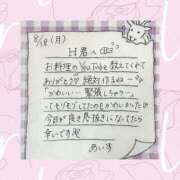 8/18(月)
H君へ
お料理のYouTube教えてくれて
ありがとう 絶対作るねー
「かわいい… 緊張しちゃう…」
ってモジモジしてたのもかわいかった
今日が良き息抜きになってたら
幸いです
めいす